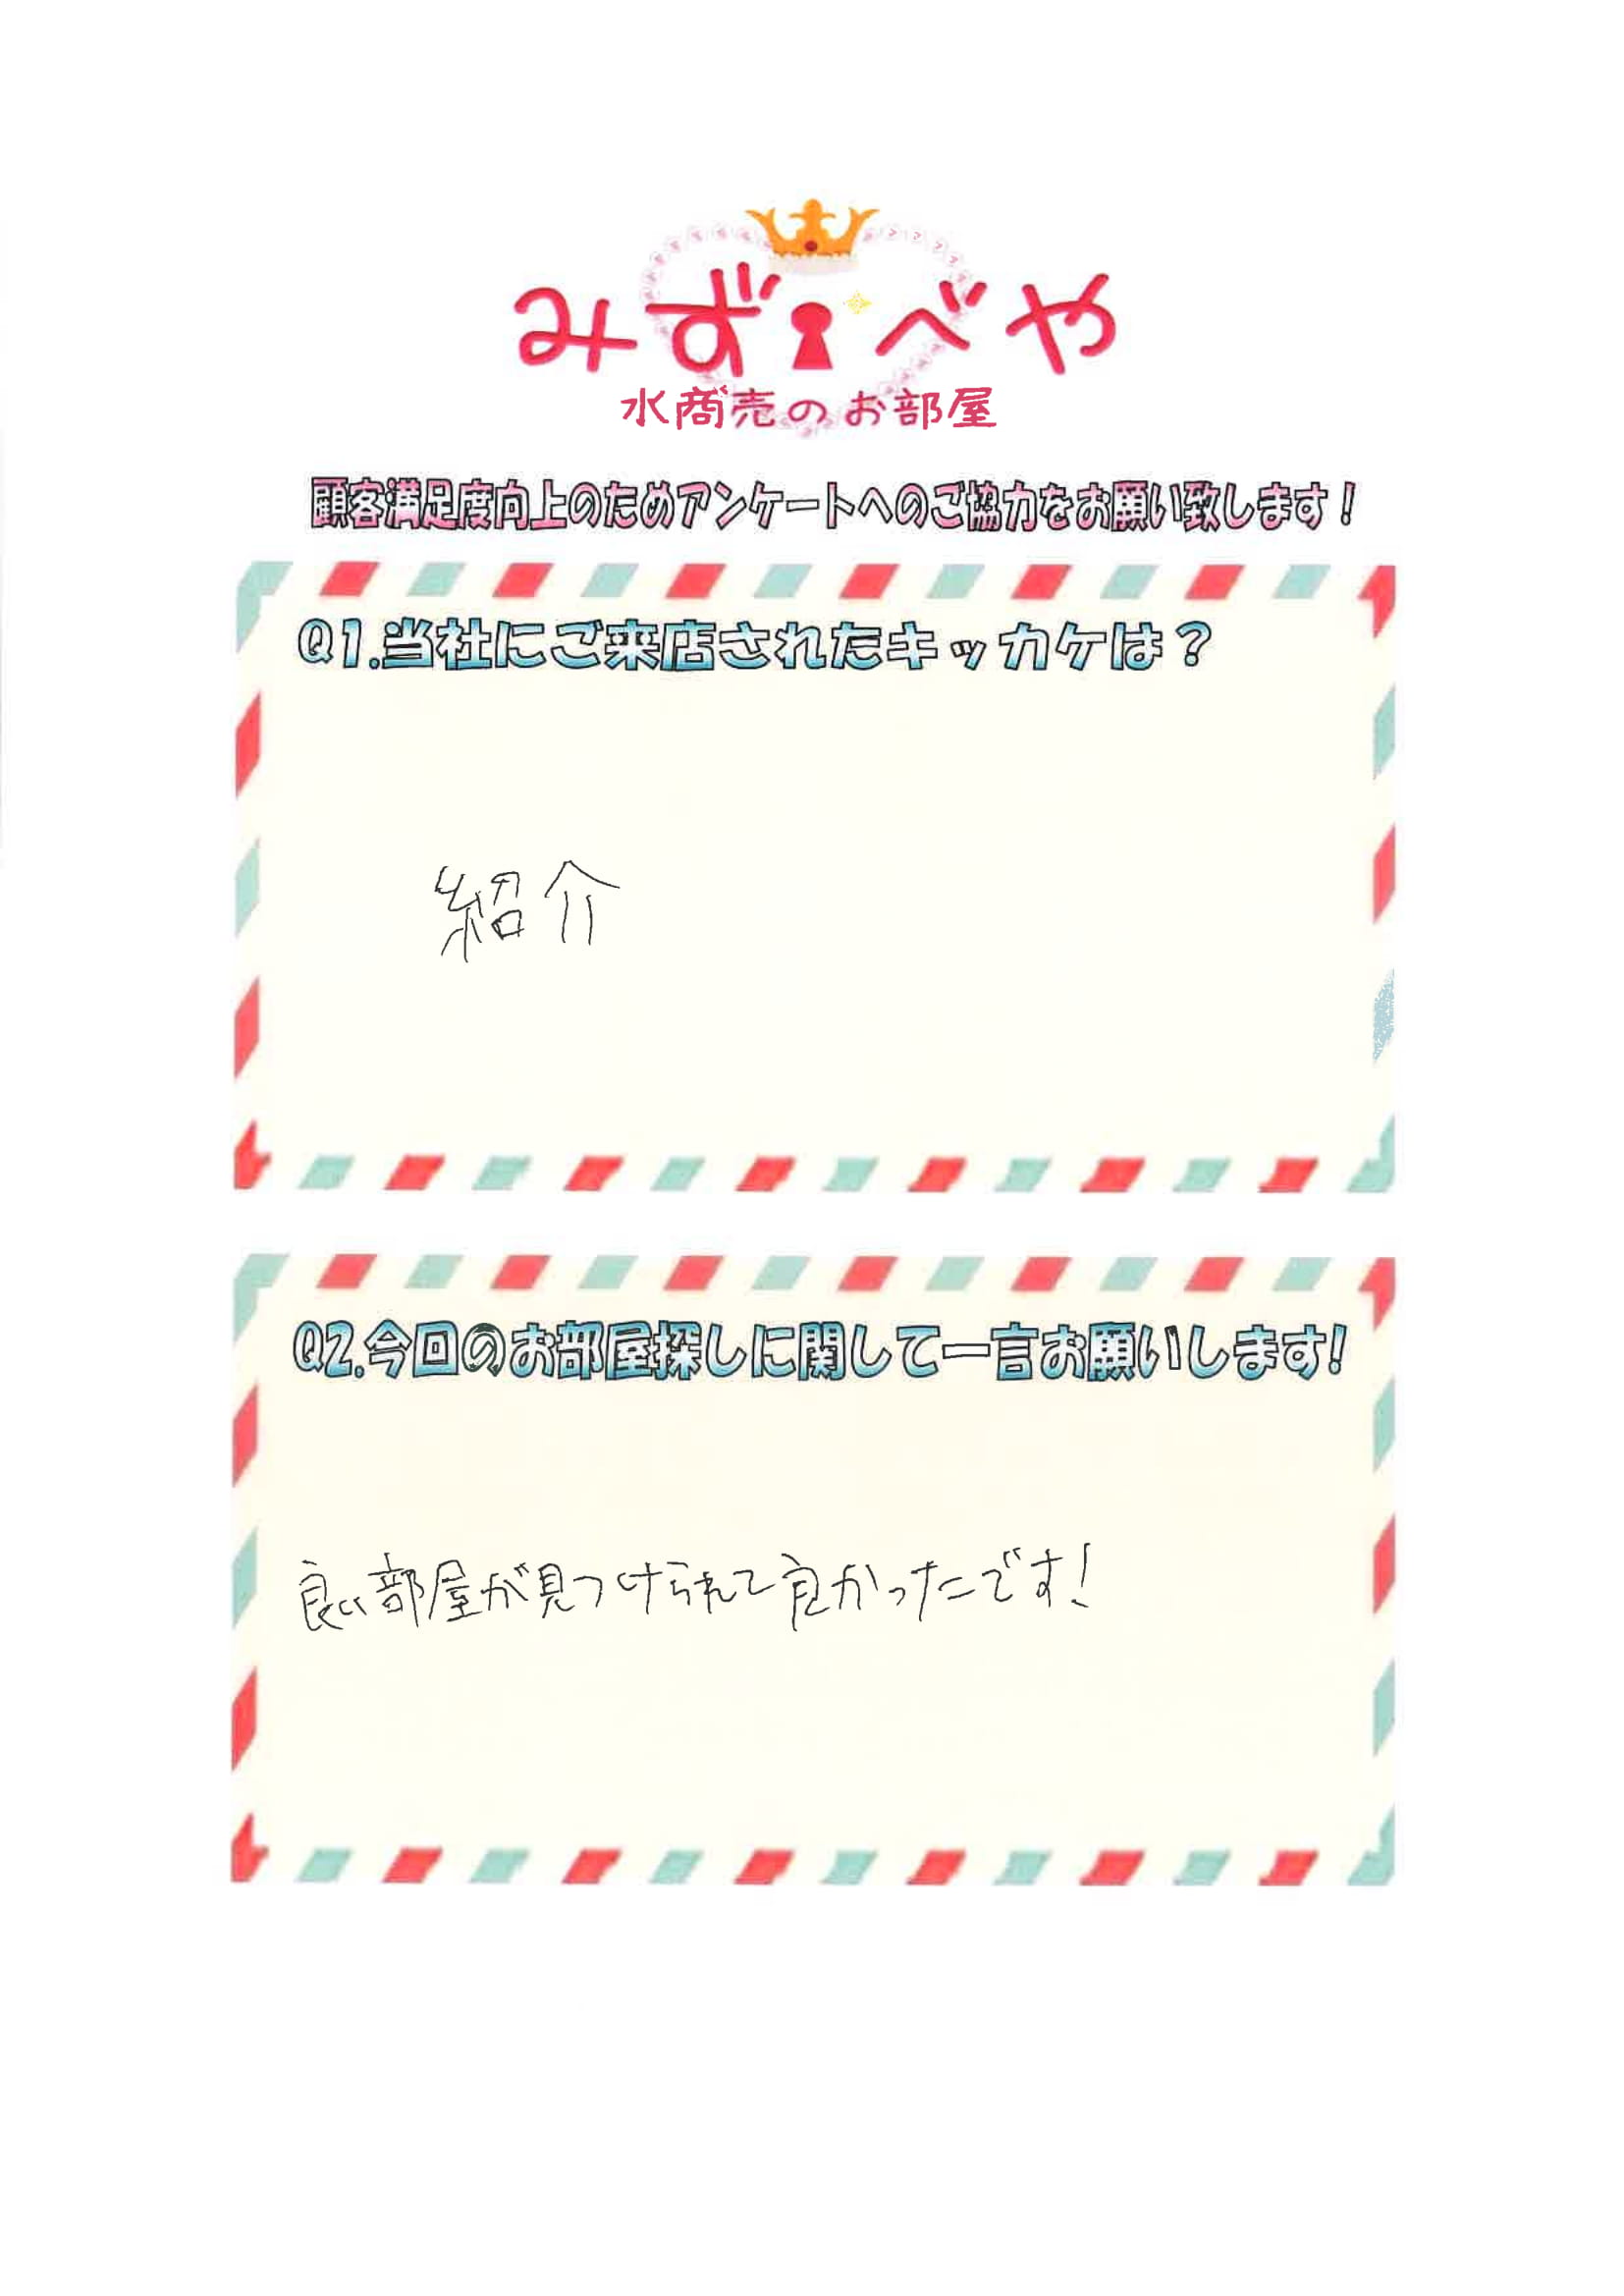 みずべや
水商売のお部屋
顧客満足度向上のためアンケートへのご協力をお願い致します！
Q1.当社にご来店されたキッカケは？
紹介
Q2.今回のお部屋探しに関して一言お願いします!
良い部屋が見つけられて良かったです!